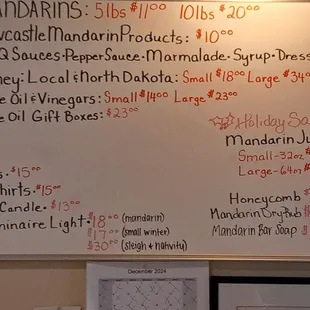 NDARINS: 5lbs $11.00 10lbs $20.00
wcastle Mandarin Products: $10.00
Q Sauces · Pepper Sauce · Marmalade · Syrup · Dress
ney: Local & North Dakota: Small $18.00 Large $34
e Oil & Vinegars: Small $14.00 Large $23.00
e Oil Gift Boxes: $23.00
Holiday Sa
Mandarin Ju
Small - 32oz
Large - 64oz
s. $15.00
hirts. $15.00
Candle. $13.00
minaire Light. $18.00 (mandarin)
$17.00 (small winter)
$30.00 (sleigh & nativity)
Honeycomb $
Mandarin Dry Rub $
Mandarin Bar Soap $
December 2024